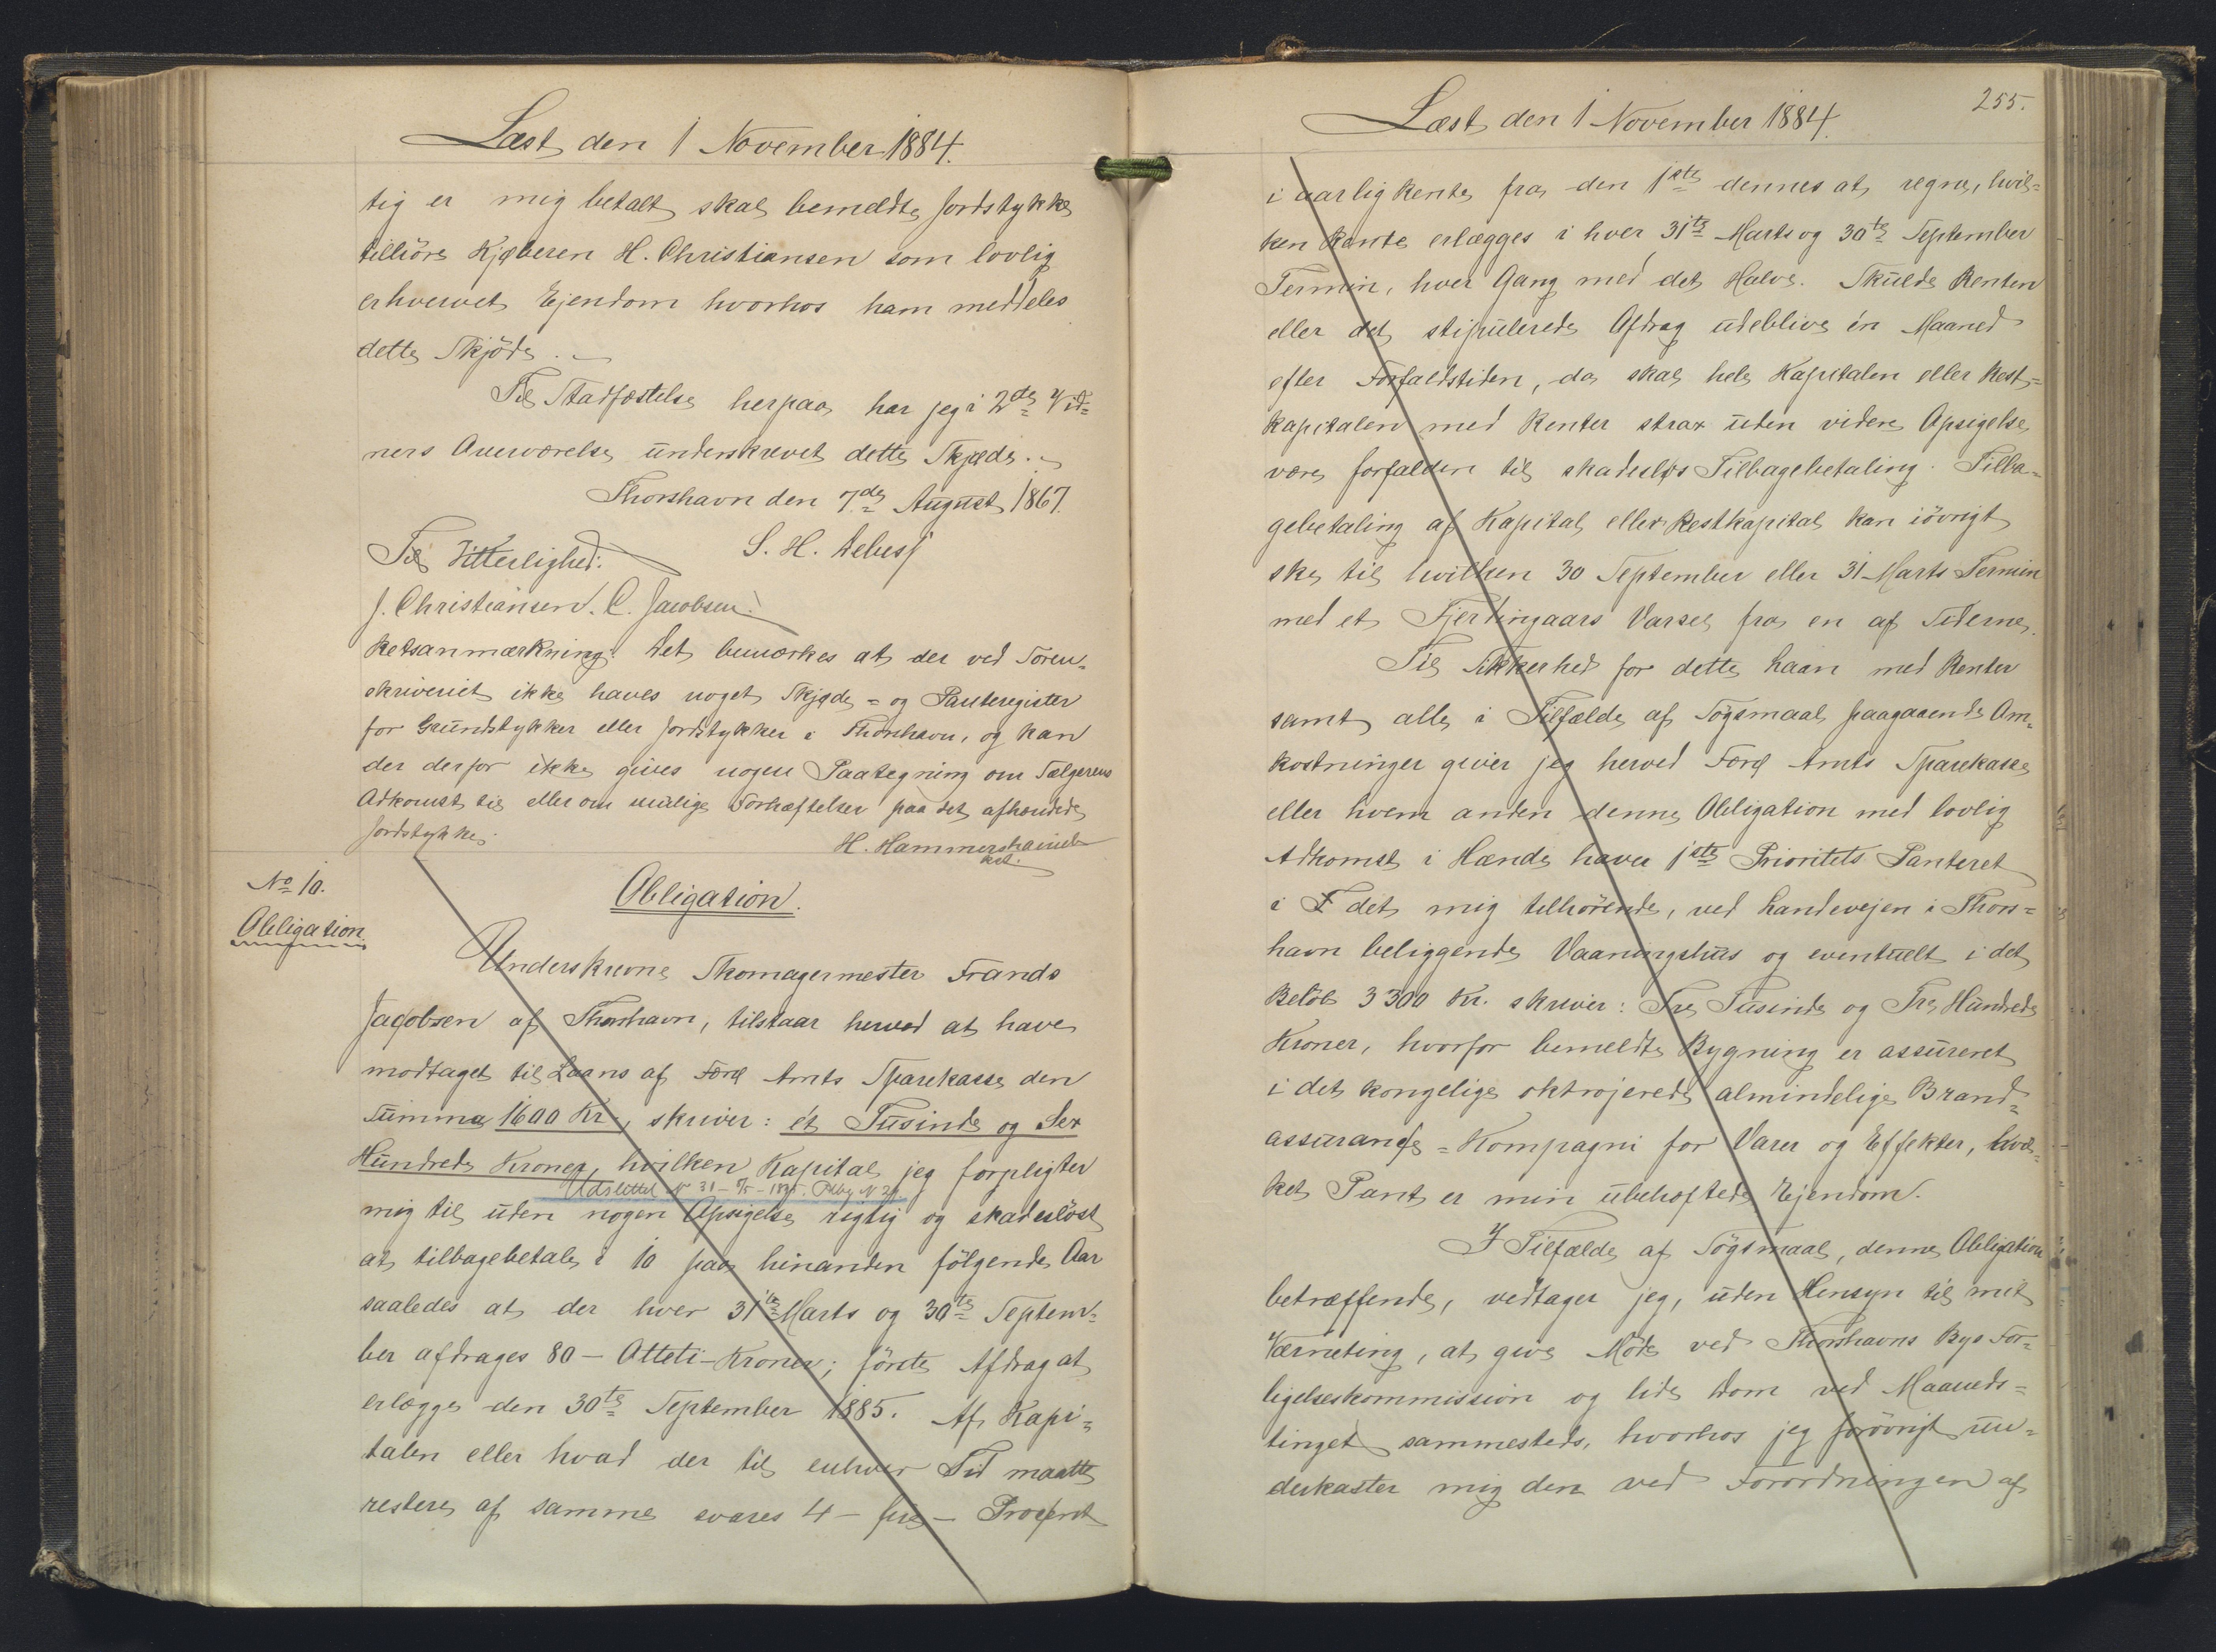 Læst den 1 November 1884.
tig er mig betalt skal bemeldte Jordstykke
tilhöre Kjøberen H. Christiansen som lovlig
erhvervet Ejendom hvorhos ham meddeles
dette Skjöde.
Til Stadfæstelse herpaa har jeg i 2de Vid=
ners Overværelse underskrevet dette Skjøde.
Thorshavn den 7de August 1867.
S. H. Debess
Til Vitterlighed:
J. Christiansen. C. Jacobsen.
Retsanmærkning: Det bemærkes at der ved Soren=
skriveriet ikke haves noget Skjøde= og Panteregister
for Grundstykker eller Jordstykker i Thorshavn, og kan
der derfor ikke gives nogen Paategning om Sælgerens
Adkomst til eller om mulige Forhæftelser paa det afhændede
Jordstykke.
H. Hammershaimb
kst.
No 10.
Obligation
Obligation.
Underskrevne Skomagermester Frands
Jacobsen af Thorshavn, tilstaar herved at have
modtaget til Laans af Færø Amts Sparekasse den
Summa 1600 Kr, skriver: ét Tusinde og Sex
Hundrede Kroner, hvilken Kapital jeg forpligter
Udslettet No 31 -
mig til uden nogen Opsigelse rigtig og skadeslöst
at tilbagebetale i 10 paa hinanden fölgende Aar
saaledes at der hver 31te Marts og 30te Septem=
ber afdrages 80 - Otteti - Kroner; förste Afdrag at
erlægge den 30te September 1885. Af Kapi=
talen eller hvad der til enhver Tid maatte
restere af samme svares 4 - fire - Procent
Læst den 1 November 1884.
255.
i aarlig Rente fra den 1ste dennes at regne, hvil=
ken Rente erlægges i hver 31te Marts og 30te September
Termin, hver Gang med det Halve. Skulde Renten
eller det stipulerede Afdrag udeblive én Maaned
efter Forfaldstiden, da skal hele Kapitalen eller Rest=
kapitalen med Renter strax uden videre Opsigelse
være forfalden til skadesløs Tilbagebetaling. Tilba=
gebetaling af Kapital eller Restkapital kan iövrigt
ske til hvilken 30 September eller 31 Marts Termin
med et Fjerdingaars Varsel fra en af Siderne.
Til Sikkerhed for dette Laan med Renter
samt alle i Tilfælde af Sögsmaal paagaaende Om=
kostninger giver jeg herved Færø Amts Sparekasse
eller hvem anden denne Obligation med lovlig
Adkomst i Hænde haver 1ste Prioritets Panteret
i det mig tilhörende, ved Landevejen i Thors=
havn beliggende Vaaningshus og eventuelt i det
Belöb 3300 Kr. skriver: Tre Tusinde og Tre Hundrede
Kroner, hvorfor bemeldte Bygning er assureret
i det kongelige oktrojerede almindelige Brand=
assurance=Kompagni for Varer og Effekter, hvil=
ket Pant er min ubehæftede Ejendom.
I Tilfælde af Sögsmaal, denne Obligation
betræffende, vedtager jeg, uden Hensyn til mit
Værneting, at give Möde ved Thorshavns Bys For=
ligelseskommission og lide Dom ved Maaneds=
tinget sammesteds, hvorhos jeg forövrigt un=
derkaster mig den ved Forordningen af